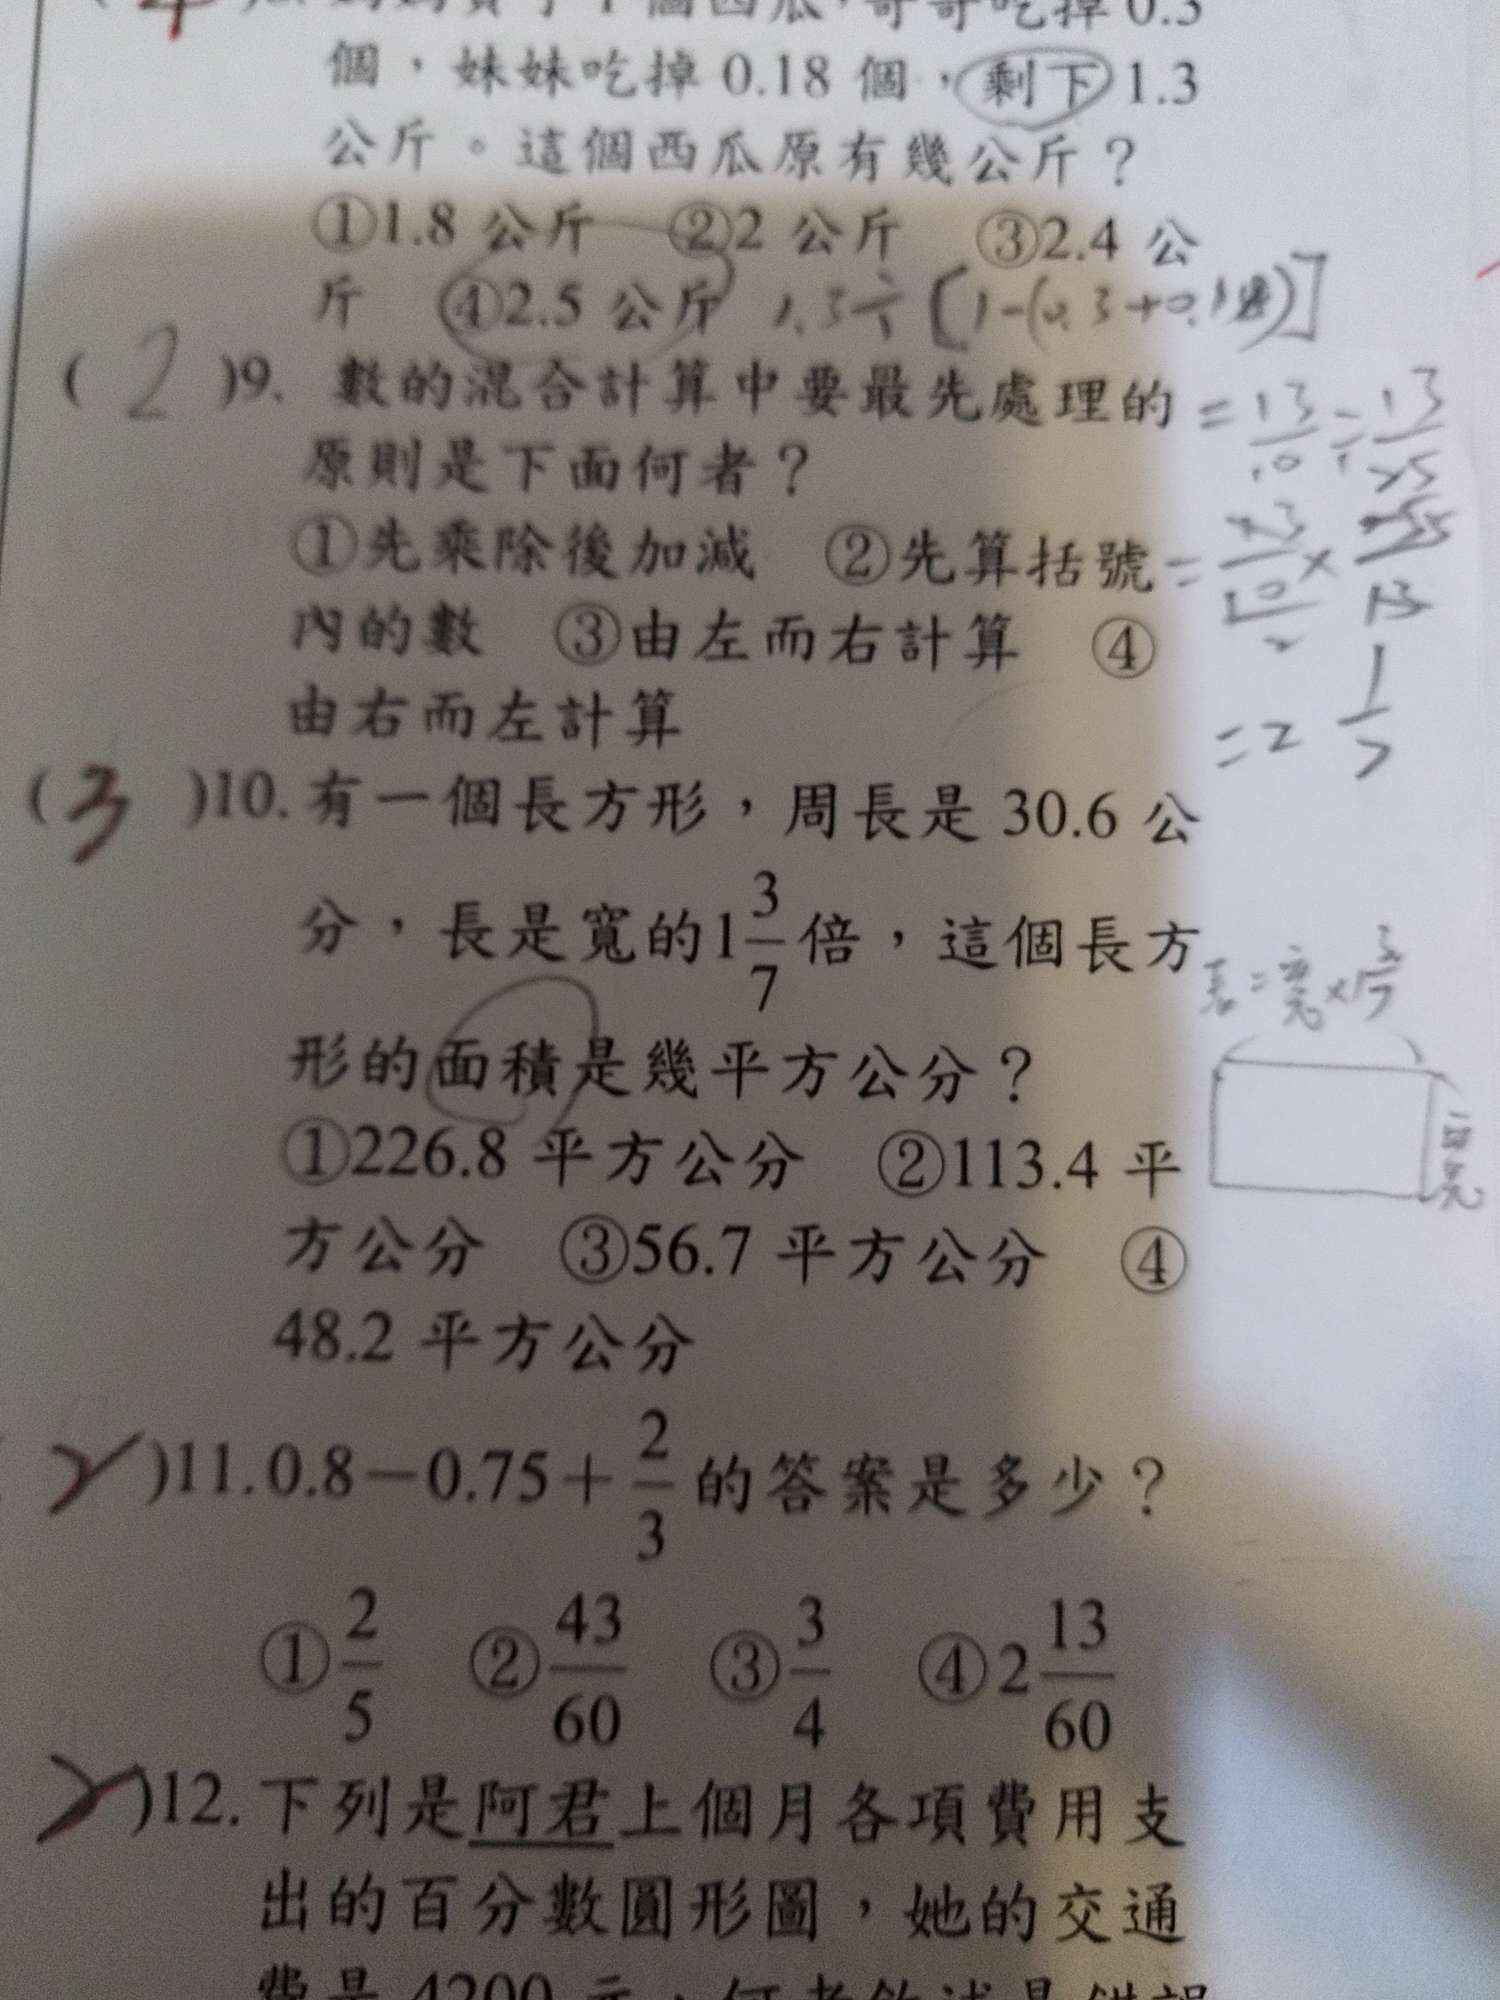 個，妹妹吃掉 0.18 個，剩下 1.3
公斤。這個西瓜原有幾公斤？
①1.8 公斤 ②2 公斤 ③2.4 公
斤 ④2.5 公斤 1.3÷[1-(0.3+0.18)]
( 2 )9. 數的混合計算中要最先處理的
原則是下面何者？
①先乘除後加減 ②先算括號
內的數 ③由左而右計算 ④
由右而左計算
= 2 1/2
( 3 )10. 有一個長方形，周長是 30.6 公
分，長是寬的1 3/7 倍，這個長方
長=寬×1 3/7
形的面積是幾平方公分？
寬
①226.8 平方公分 ②113.4 平
方公分 ③56.7 平方公分 ④
48.2 平方公分
2 )11. 0.8－0.75＋2/3 的答案是多少？
①2/5 ②43/60 ③3/4 ④2 13/60
2 )12. 下列是阿君上個月各項費用支
出的百分數圓形圖，她的交通
費是 4200 元，